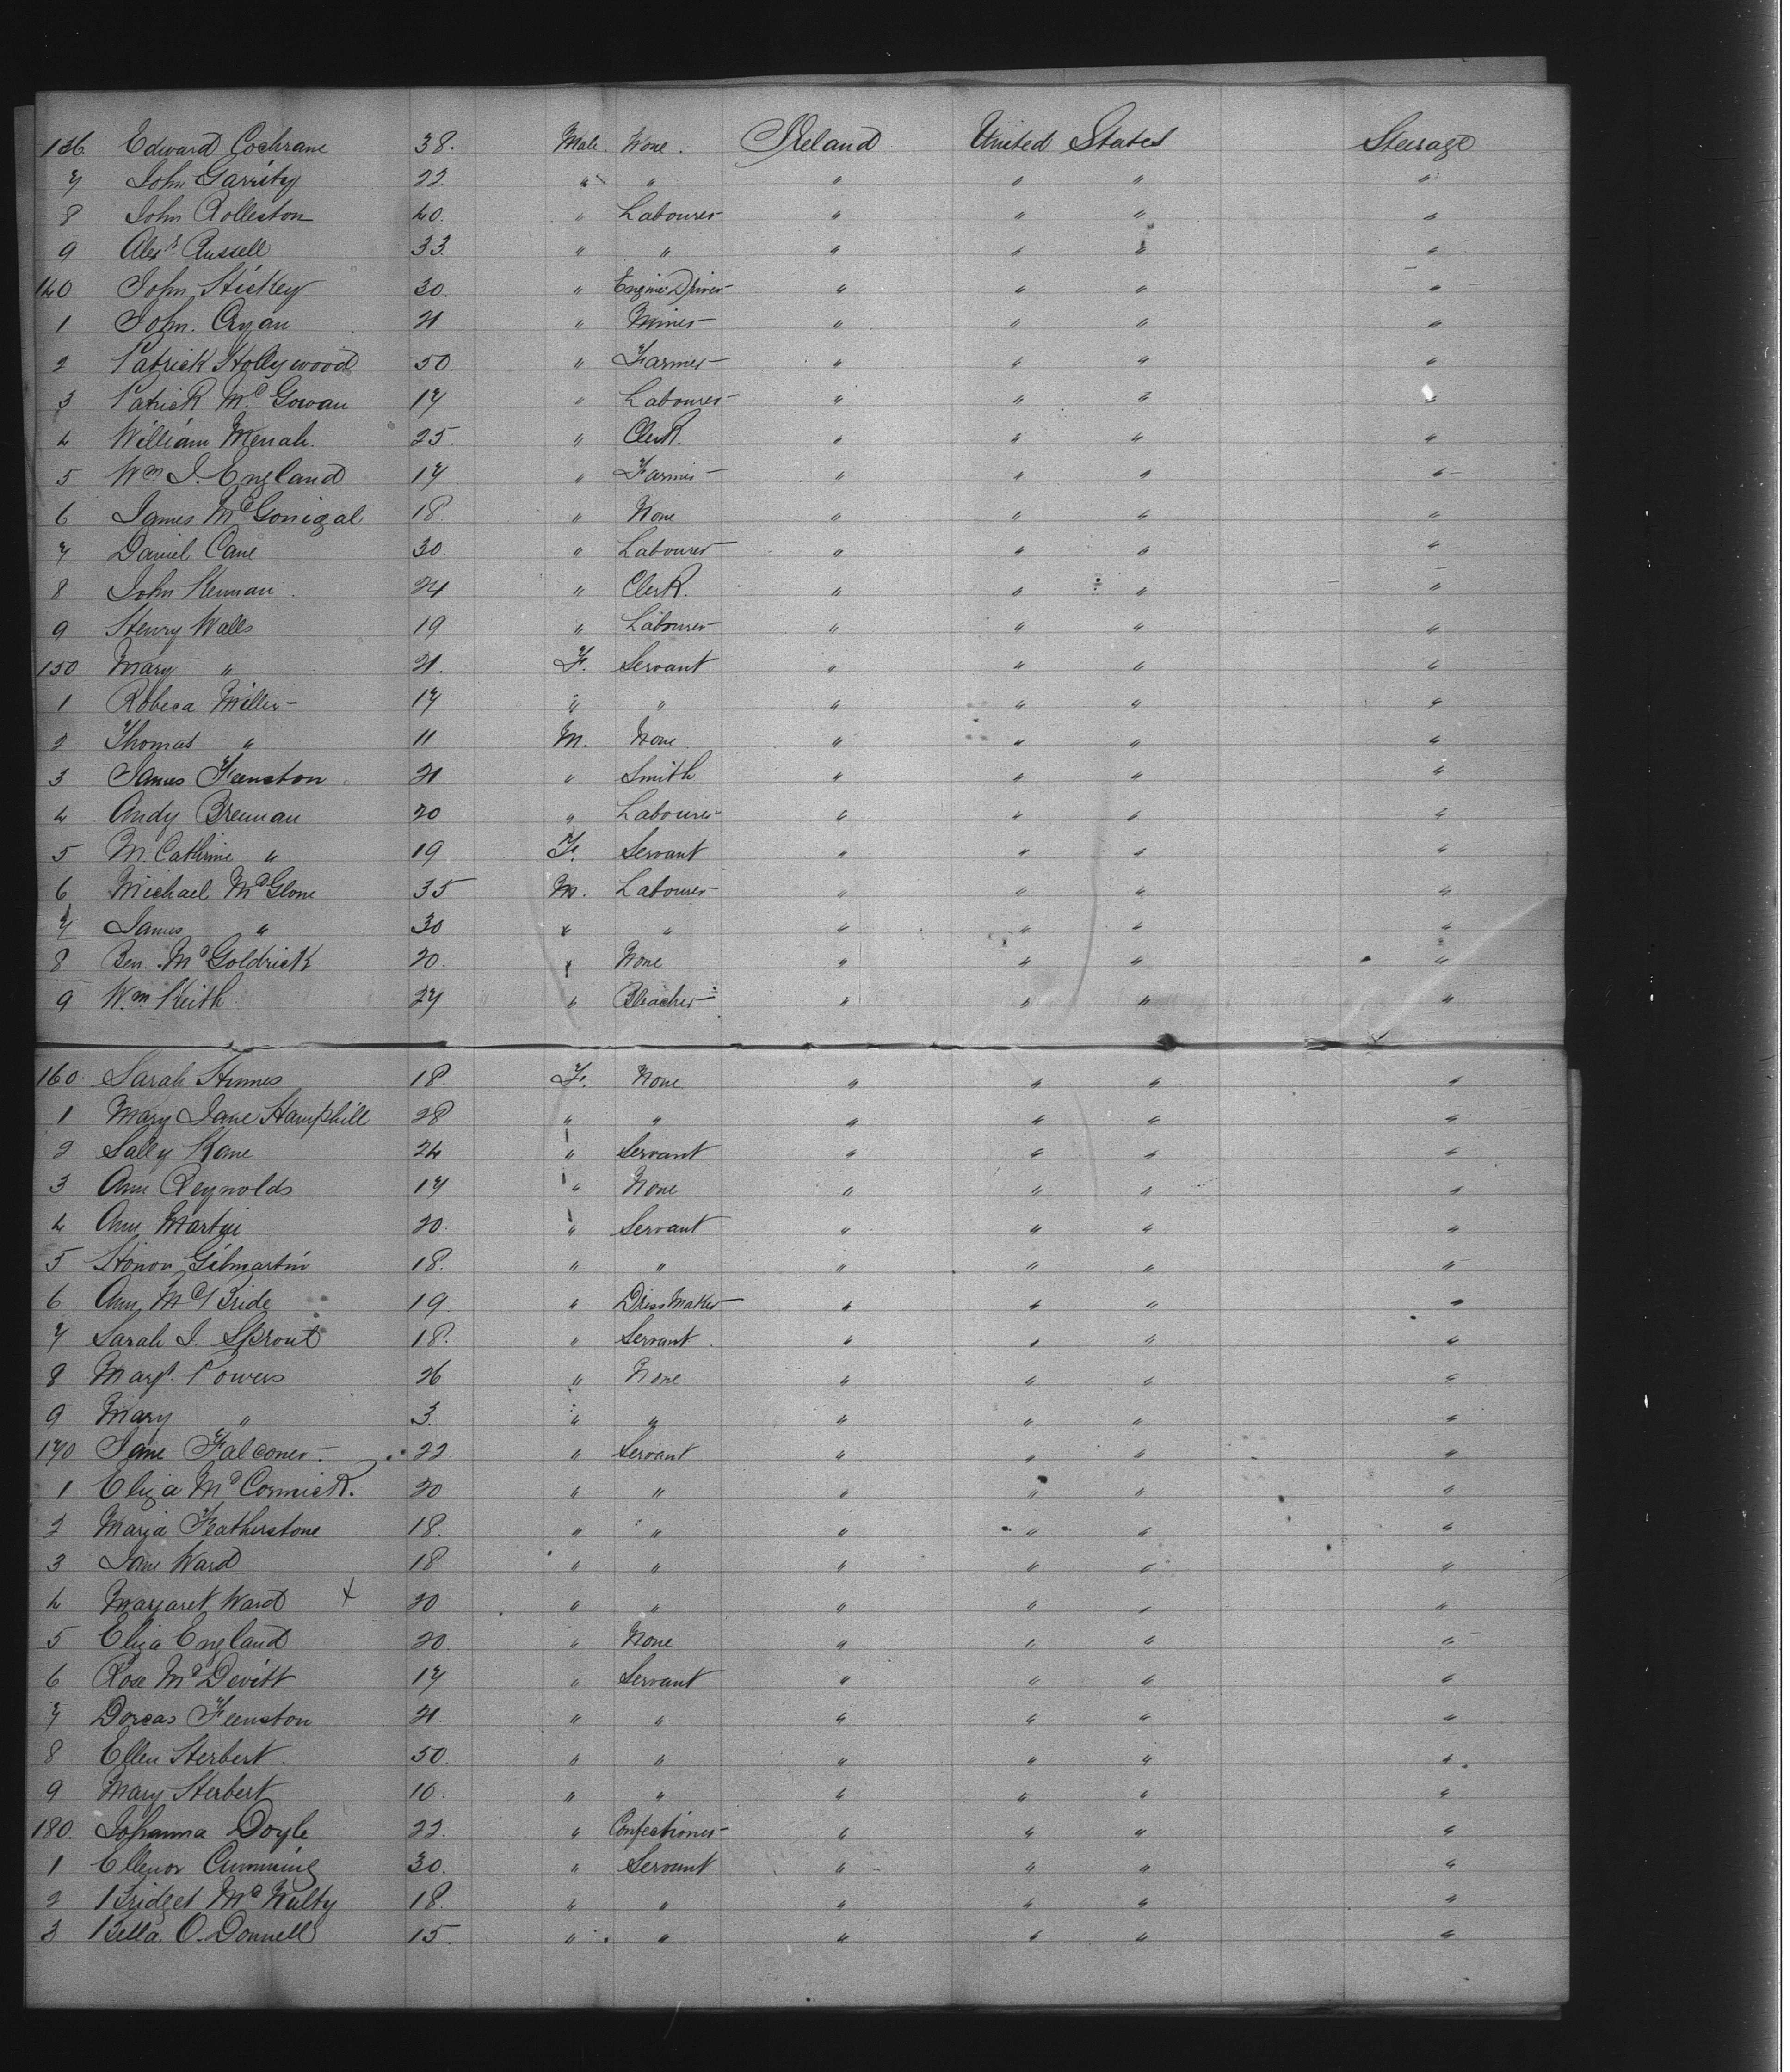 136 Edward Cochrane 38. Male. None. Ireland United States Steerage
7 John Garrity 22. " " " " " "
8 John Rolleston 40. " Labourer " " " "
9 Alexr. Russell 33. " " " " " "
140 John Hickey 30. " Engine Driver " " " "
1 John. Ryan 21 " Miner " " " "
2 Patrick Hollywood 50. " Farmer " " " "
3 Patrick Mc Gowan 17 " Labourer " " " "
4 William 25. " Clerk. " " " "
5 Wm J. England 17 " Farmer " " " "
6 James McGonigal 18. " None " " " "
7 Daniel Cane 30. " Labourer " " " "
8 John 24 " Clerk. " " " "
9 Henry Walls 19 " Labourer " " " "
150 Mary " 21. F. Servant " " " "
1 Robeca Miller 17 " " " " " "
2 Thomas " 11 M. None " " " "
3 James Feenston 21 " Smith " " " "
4 Andy Brennan 20 " Labourer " " " "
5 M. Cathrine " 19 F. Servant " " " "
6 Michael McGlone 35 M. Labourer " " " "
7 James " 30 " " " " " "
8 Ben. McGoldrick 20. " None " " " "
9 Wm Keith 27 " Bleacher " " " "
160. Sarah 18. F. None " " " "
1 Mary Jane Hamphill 28 " " " " " "
2 Sally Kane 24 " Servant " " " "
3 Ann Reynolds 17 " None " " " "
4 Ann Martin 20. " Servant " " " "
5 Honor Gilmartin 18. " " " " " "
6 Ann McBride 19. " Dress Maker " " " "
7 Sarah J. Sprout 18. " Servant. " " " "
8 Margt. Powers 26 " None " " " "
9 Mary " 3. " " " " " "
170 Jane Falconer 22 " Servant " " " "
1 Eliza McCormick. 20 " " " " " "
2 Maria Featherstone 18. " " " " " "
3 Jane Ward 18 " " " " " "
4 Margaret Ward x 20 " " " " " "
5 Eliza England 20. " None " " " "
6 Rose McDevitt 17 " Servant " " " "
7 Dorcas Feenston 21. " " " " " "
8 Ellen Herbert. 50. " " " " " "
9 Mary Herbert 10. " " " " " "
180. Johanna Doyle 22. " Confectioner " " " "
1 Ellenor Cumming 30. " Servant " " " "
2 Bridget McNulty 18. " " " " " "
3 Bella. O. Donnell 15. " " " " " "